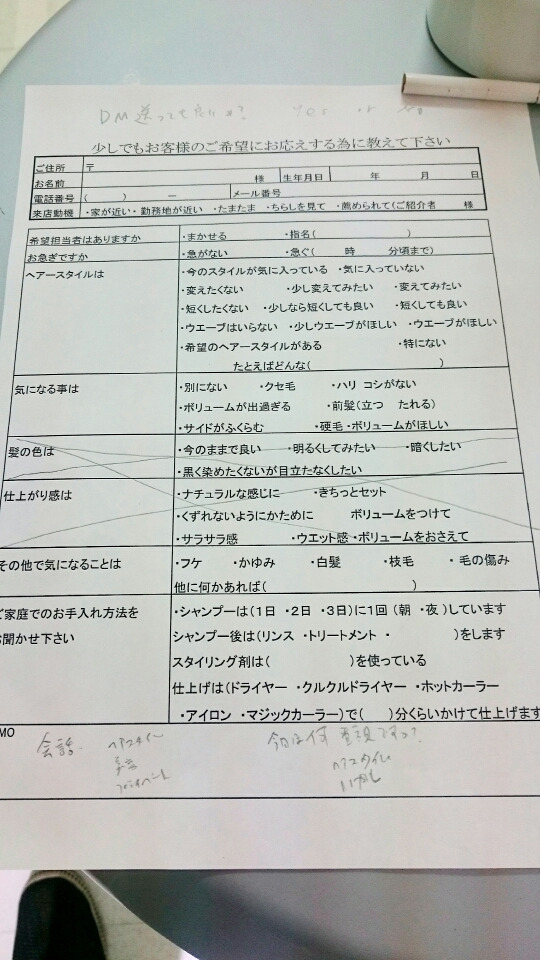 DM 送っても良いか? Yes or No
少しでもお客様のご希望にお応えする為に教えて下さい
ご住所 〒
お名前 様 生年月日 年 月 日
電話番号 ( ) ー メール番号
来店動機 ・家が近い・勤務地が近い ・たまたま ・ちらしを見て ・薦められて(ご紹介者 様
希望担当者はありますか ・まかせる ・指名( )
お急ぎですか ・急がない ・急ぐ( 時 分頃まで)
ヘアースタイルは ・今のスタイルが気に入っている ・気に入っていない
・変えたくない ・少し変えてみたい ・変えてみたい
・短くしたくない ・少しなら短くしても良い ・短くしても良い
・ウエーブはいらない ・少しウエーブがほしい ・ウエーブがほしい
・希望のヘアースタイルがある ・特にない
たとえばどんな( )
気になる事は ・別にない ・クセ毛 ・ハリ コシがない
・ボリュームが出過ぎる ・前髪(立つ たれる)
・サイドがふくらむ ・硬毛 ・ボリュームがほしい
髪の色は ・今のままで良い ・明るくしてみたい ・暗くしたい
・黒く染めたくないが目立たなくしたい
仕上がり感は ・ナチュラルな感じに ・きちっとセット
・くずれないようにかために ボリュームをつけて
・サラサラ感 ・ウエット感 ・ボリュームをおさえて
その他で気になることは ・フケ ・かゆみ ・白髪 ・枝毛 ・毛の傷み
他に何かあれば( )
ご家庭でのお手入れ方法を ・シャンプーは(1日 ・2日 ・3日)に1回 (朝 ・夜 )しています
お聞かせ下さい シャンプー後は(リンス ・トリートメント ・ )をします
スタイリング剤は( )を使っている
仕上げは(ドライヤー ・クルクルドライヤー ・ホットカーラー
・アイロン ・マジックカーラー)で( )分くらいかけて仕上げます
MO
会話 ヘアスタイル 今日は何 重視ですか?
ヘアスタイル